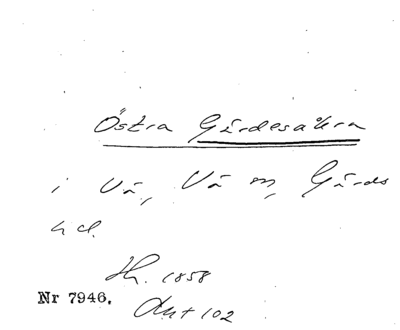 Östra Gärdesåkra
i Vä, Vä sn, Gärds
hd.
Hh. 1858
Nr 7946.
Akt 102